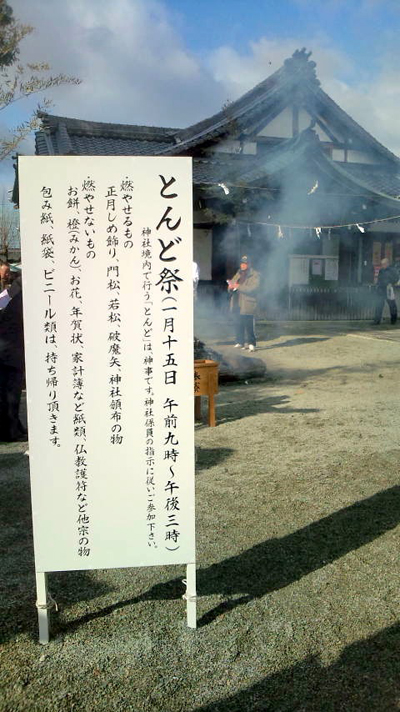 とんど祭(一月十五日 午前九時～午後三時)
神社境内で行う「とんど」は、神事です。神社係員の指示に従いご参加下さい。
・燃やせるもの
正月しめ飾り、門松、若松、破魔矢、神社頒布の物
・燃やせないもの
お餅、橙(みかん)、お花、年賀状、家計簿など紙類、仏教護符など他宗の物
包み紙、紙袋、ビニール類は、持ち帰り頂きます。